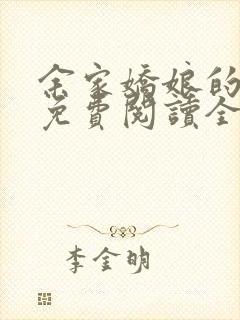 余家嬌娘的
免費閱讀全
李金明